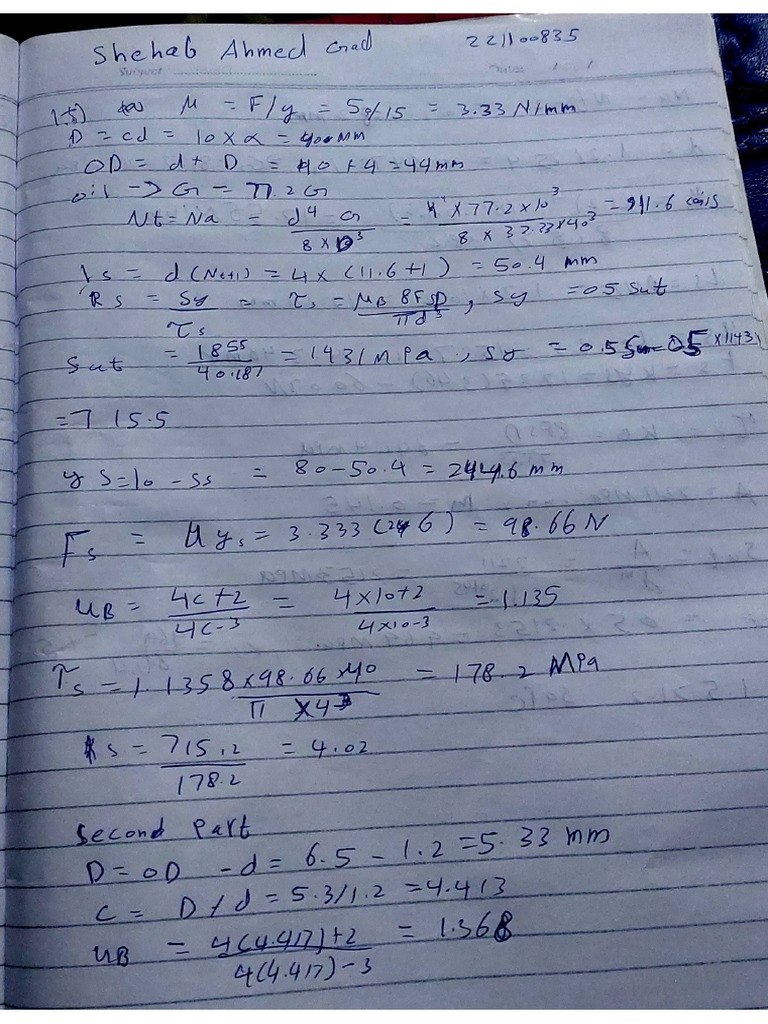 Shehab Ahmed Gad 221100835
Subject Date: / /
μ = F/y = 50/15 = 3.33 N/mm
D = cd = 10 x α = 400 mm
OD = d + D = 40 + 4 = 44 mm
oil -> G = 77.2 G
Nt = Na = d⁴ G / 8 x D³ = 4⁴ x 77.2 x 10³ / 8 x 33.33 x 40³ = 911.6 coils
Ls = d(Nt+1) = 4 x (11.6 + 1) = 50.4 mm
Rs = Sy / τs = τs = μB 8FsD / πd³ , Sy = 05 Sut
Sut = 1855 / 40.187 = 1431 MPa , Sy = 0.5 S 05 x 11431
= 715.5
ys = lo - ss = 80 - 50.4 = 2449.6 mm
Fs = μ ys = 3.333 (296) = 98.66 N
uB = 4c + 2 / 4c - 3 = 4 x 10 + 2 / 4 x 10 - 3 = 1.135
τs = 1.135 8 x 98.66 x 40 / π x 4³ = 178.2 MPa
s = 715.2 / 178.2 = 4.02
Second Part
D = OD - d = 6.5 - 1.2 = 5.33 mm
C = D / d = 5.3 / 1.2 = 4.413
uB = 4(4.417) + 2 / 4(4.417) - 3 = 1.368